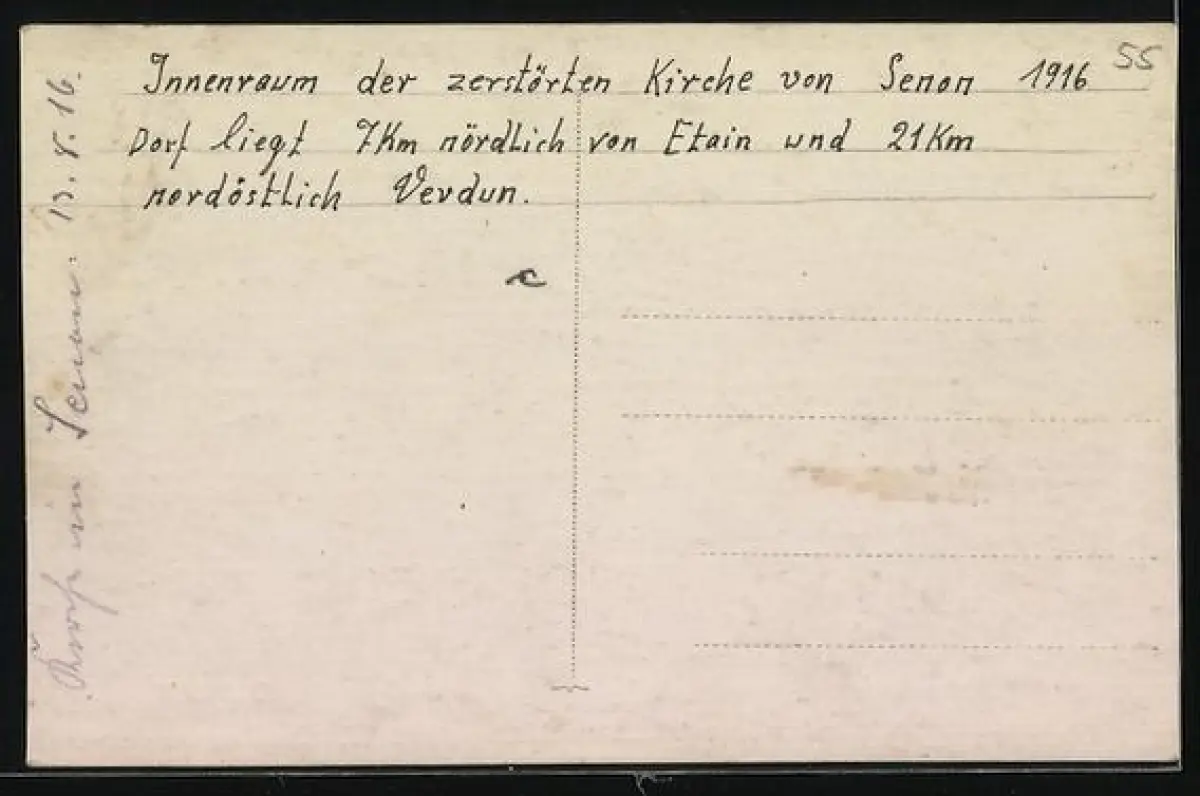 55
Innenraum der zerstörten Kirche von Senon 1916
Dorf liegt 7Km nördlich von Etain und 21Km
nordöstlich Verdun.
c
in Senon. 8.16.